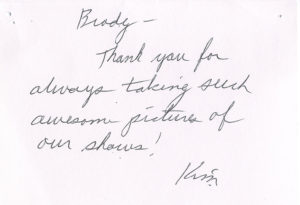 Brody –
Thank you for
always taking such
awesome pictures of
our shows!
Kim